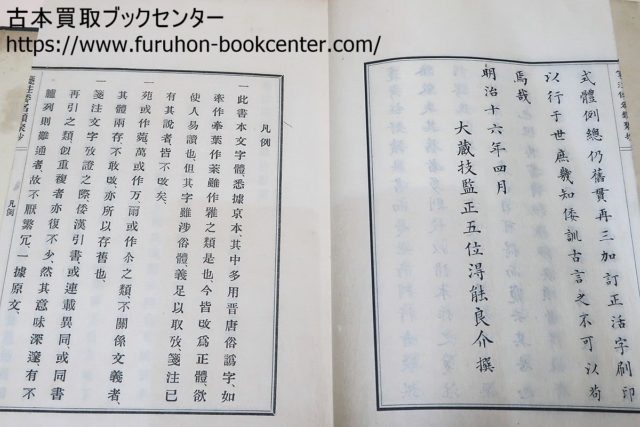 古本買取ブックセンター
https://www.furuhon-bookcenter.com/
式體例總仍舊貫再三加訂正活字刷印
以行于世庶幾知倭訓古言之不可以苟
焉哉
明治十六年四月
大藏技監正五位得能良介撰
凡例
一此書本文字體悉據京本、其中多用晉唐俗譌字、如
牽作牵葉作䒶雖作雅之類是也、今皆改爲正體欲
使人易讀也、但其字雖涉俗體義足以取攷、箋注已
有其說者、皆不改矣、
一苑或作菀、萬或作万、爾或作尒之類、不關係文義者、
其體兩存不敢改、亦所以存舊也、
一箋注文字攷證之際、倭漢引書或連載異同、或同書
再引之類、似重複者亦復不少、然其意味深邃、有不
臚列則難通者、故不厭繁冗、一據原文、
箋注倭名類聚抄
凡例